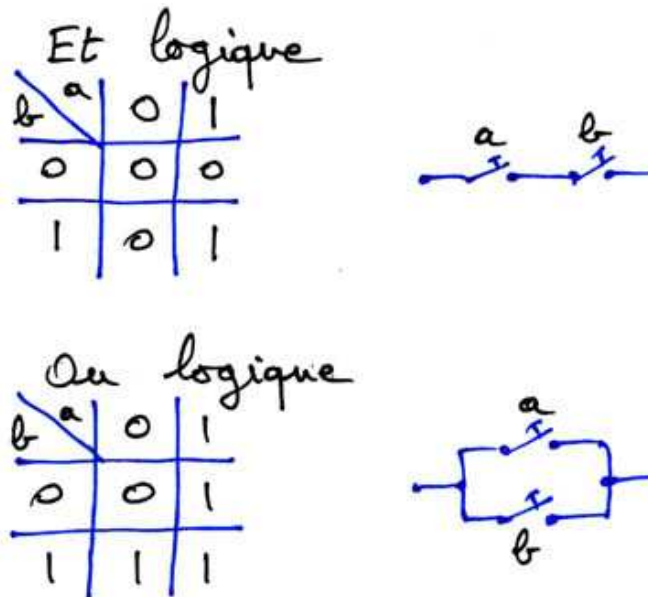 Et logique
a
b 0 1
0 0 0
1 0 1
a b
Ou logique
a
b 0 1
0 0 1
1 1 1
a
b